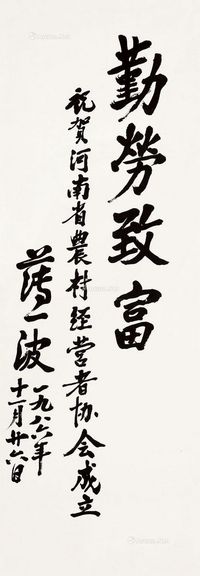 勤勞致富
祝賀河南省農村经営者协会成立
薄一波
一九八六年
十一月廿六日